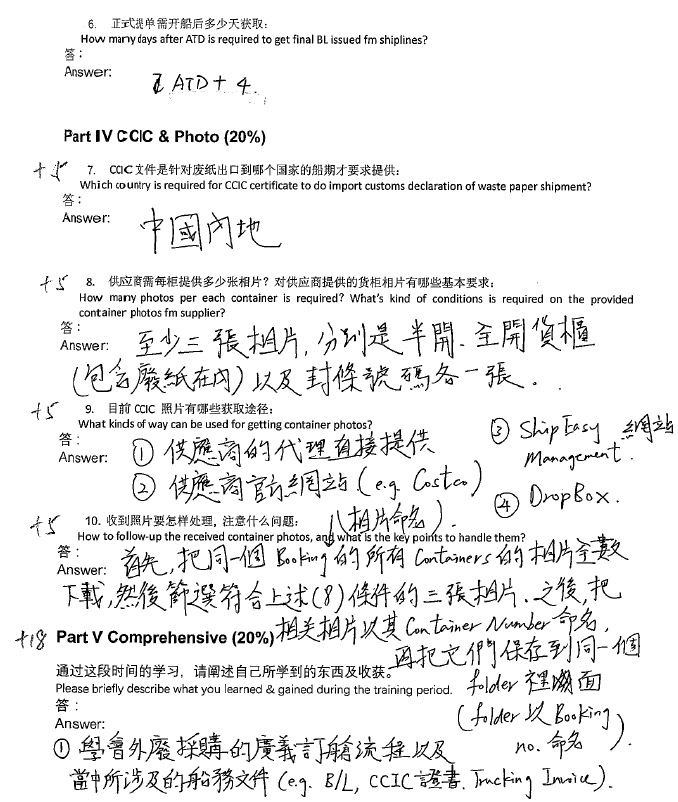 6. 正式提单需开船后多少天获取：
How many days after ATD is required to get final BL issued fm shiplines?
答：
Answer:
ATD + 4.
Part IV CCIC & Photo (20%)
7. CCIC 文件是针对废纸出口到哪个国家的船期才要求提供：
Which country is required for CCIC certificate to do import customs declaration of waste paper shipment?
答：
Answer:
中國內地
+5 8. 供应商需每柜提供多少张相片？对供应商提供的货柜相片有哪些基本要求：
How many photos per each container is required? What's kind of conditions is required on the provided
container photos fm supplier?
答：
Answer: 至少三張相片，分別是半開、全開貨櫃
(包含廢紙在內) 以及封條號碼各一張．
+5 9. 目前 CCIC 照片有哪些获取途径：
What kinds of way can be used for getting container photos?
答：
Answer: ① 供應商的代理直接提供
② 供應商官方網站 (e.g. Costco)
③ ShipEasy 網站
Management.
④ DropBox.
+5 10. 收到照片要怎样处理，注意什么问题：
(相片命名).
How to follow-up the received container photos, and what is the key points to handle them?
答：
Answer: 首先，把同一個 Booking 的所有 Containers 的相片全數
下載，然後篩選符合上述(8)條件的三張相片．之後，把
相关相片以其 Container Number 命名，
再把它們保存到同一個
folder 裡面
(folder 以 Booking
no. 命名).
+18 Part V Comprehensive (20%)
通过这段时间的学习，请阐述自己所学到的东西及收获。
Please briefly describe what you learned & gained during the training period.
答：
Answer:
① 學會外廢採購的廣義訂艙流程以及
當中所涉及的船務文件 (e.g. B/L, CCIC 證書, Trucking Invoice).